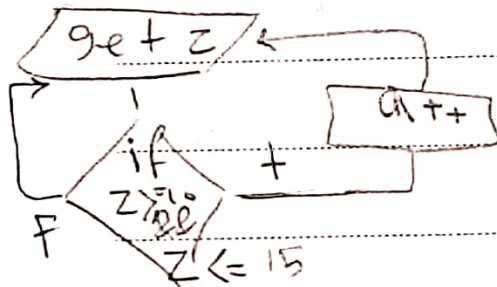 get z
a++
if
t
z>=10
&&
F
z<=15